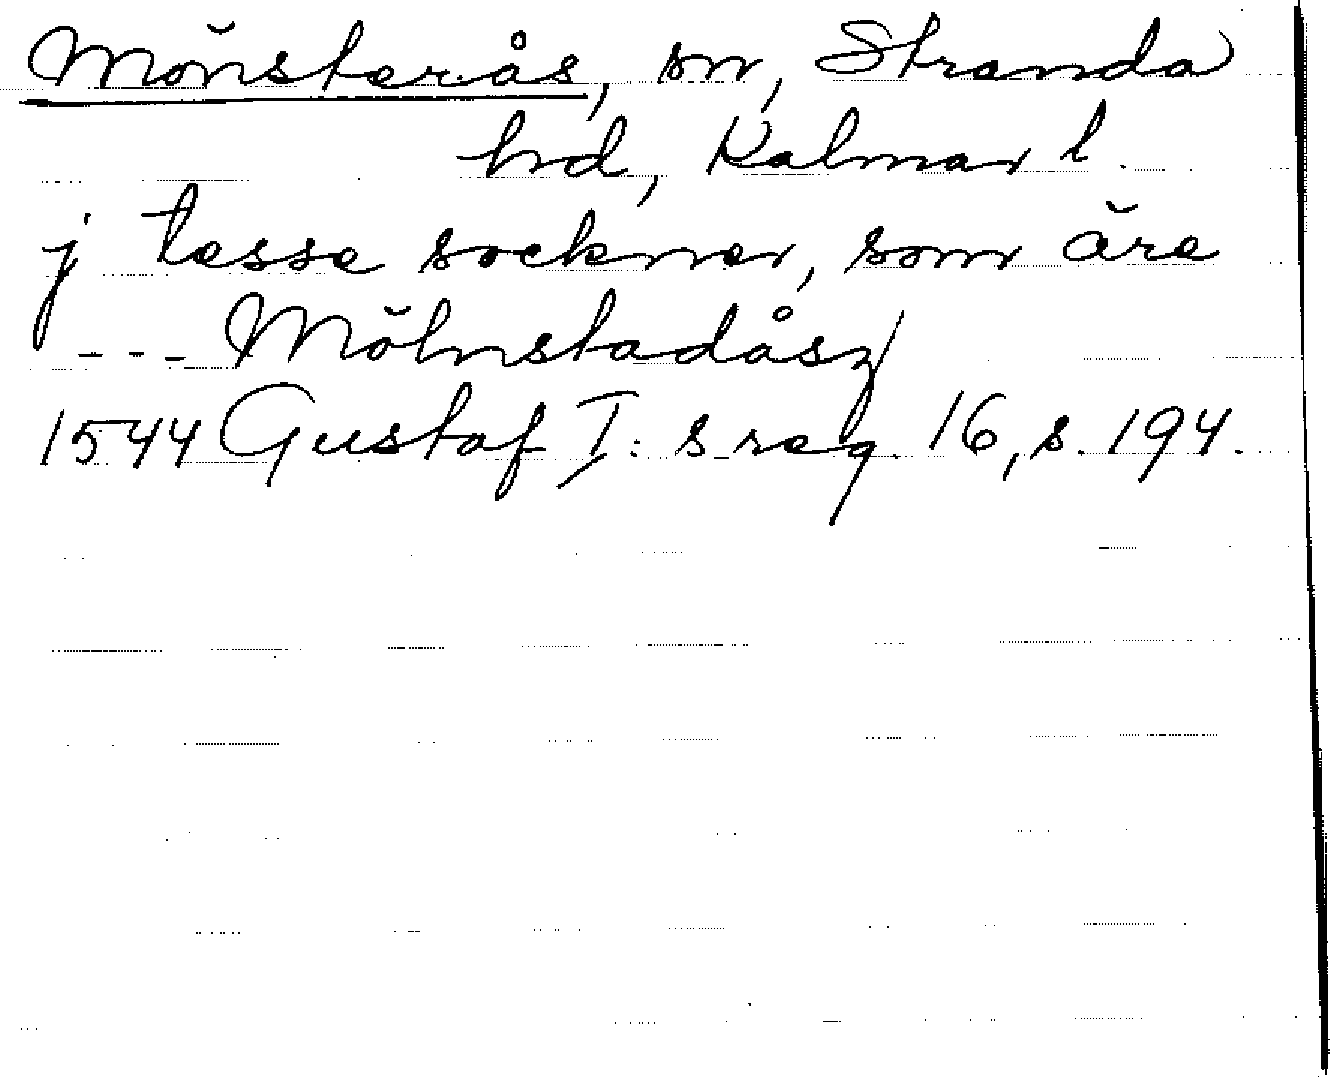 Mönsterås, sn, Stranda
hd, Kalmar l.
j tesse sockner, som äre
--- Mölnstadåsz
1544 Gustaf I:s reg. 16, s. 194.